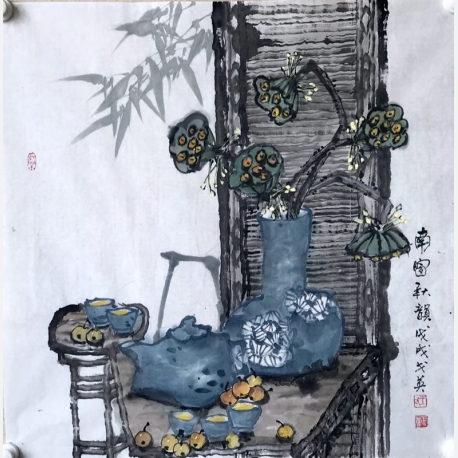 南窗秋韻戊戌戈英